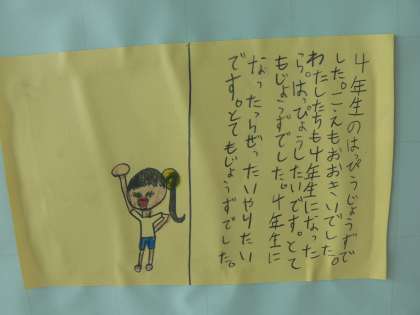 4年生のはぴょうじょうずで
した。こえもおおきいでした。
わたしたちも4年生になった
ら。はっぴょうしたいです。とて
もじょうずでした。4年生に
なったらぜったいやりたい
です。とてもじょうずでした。